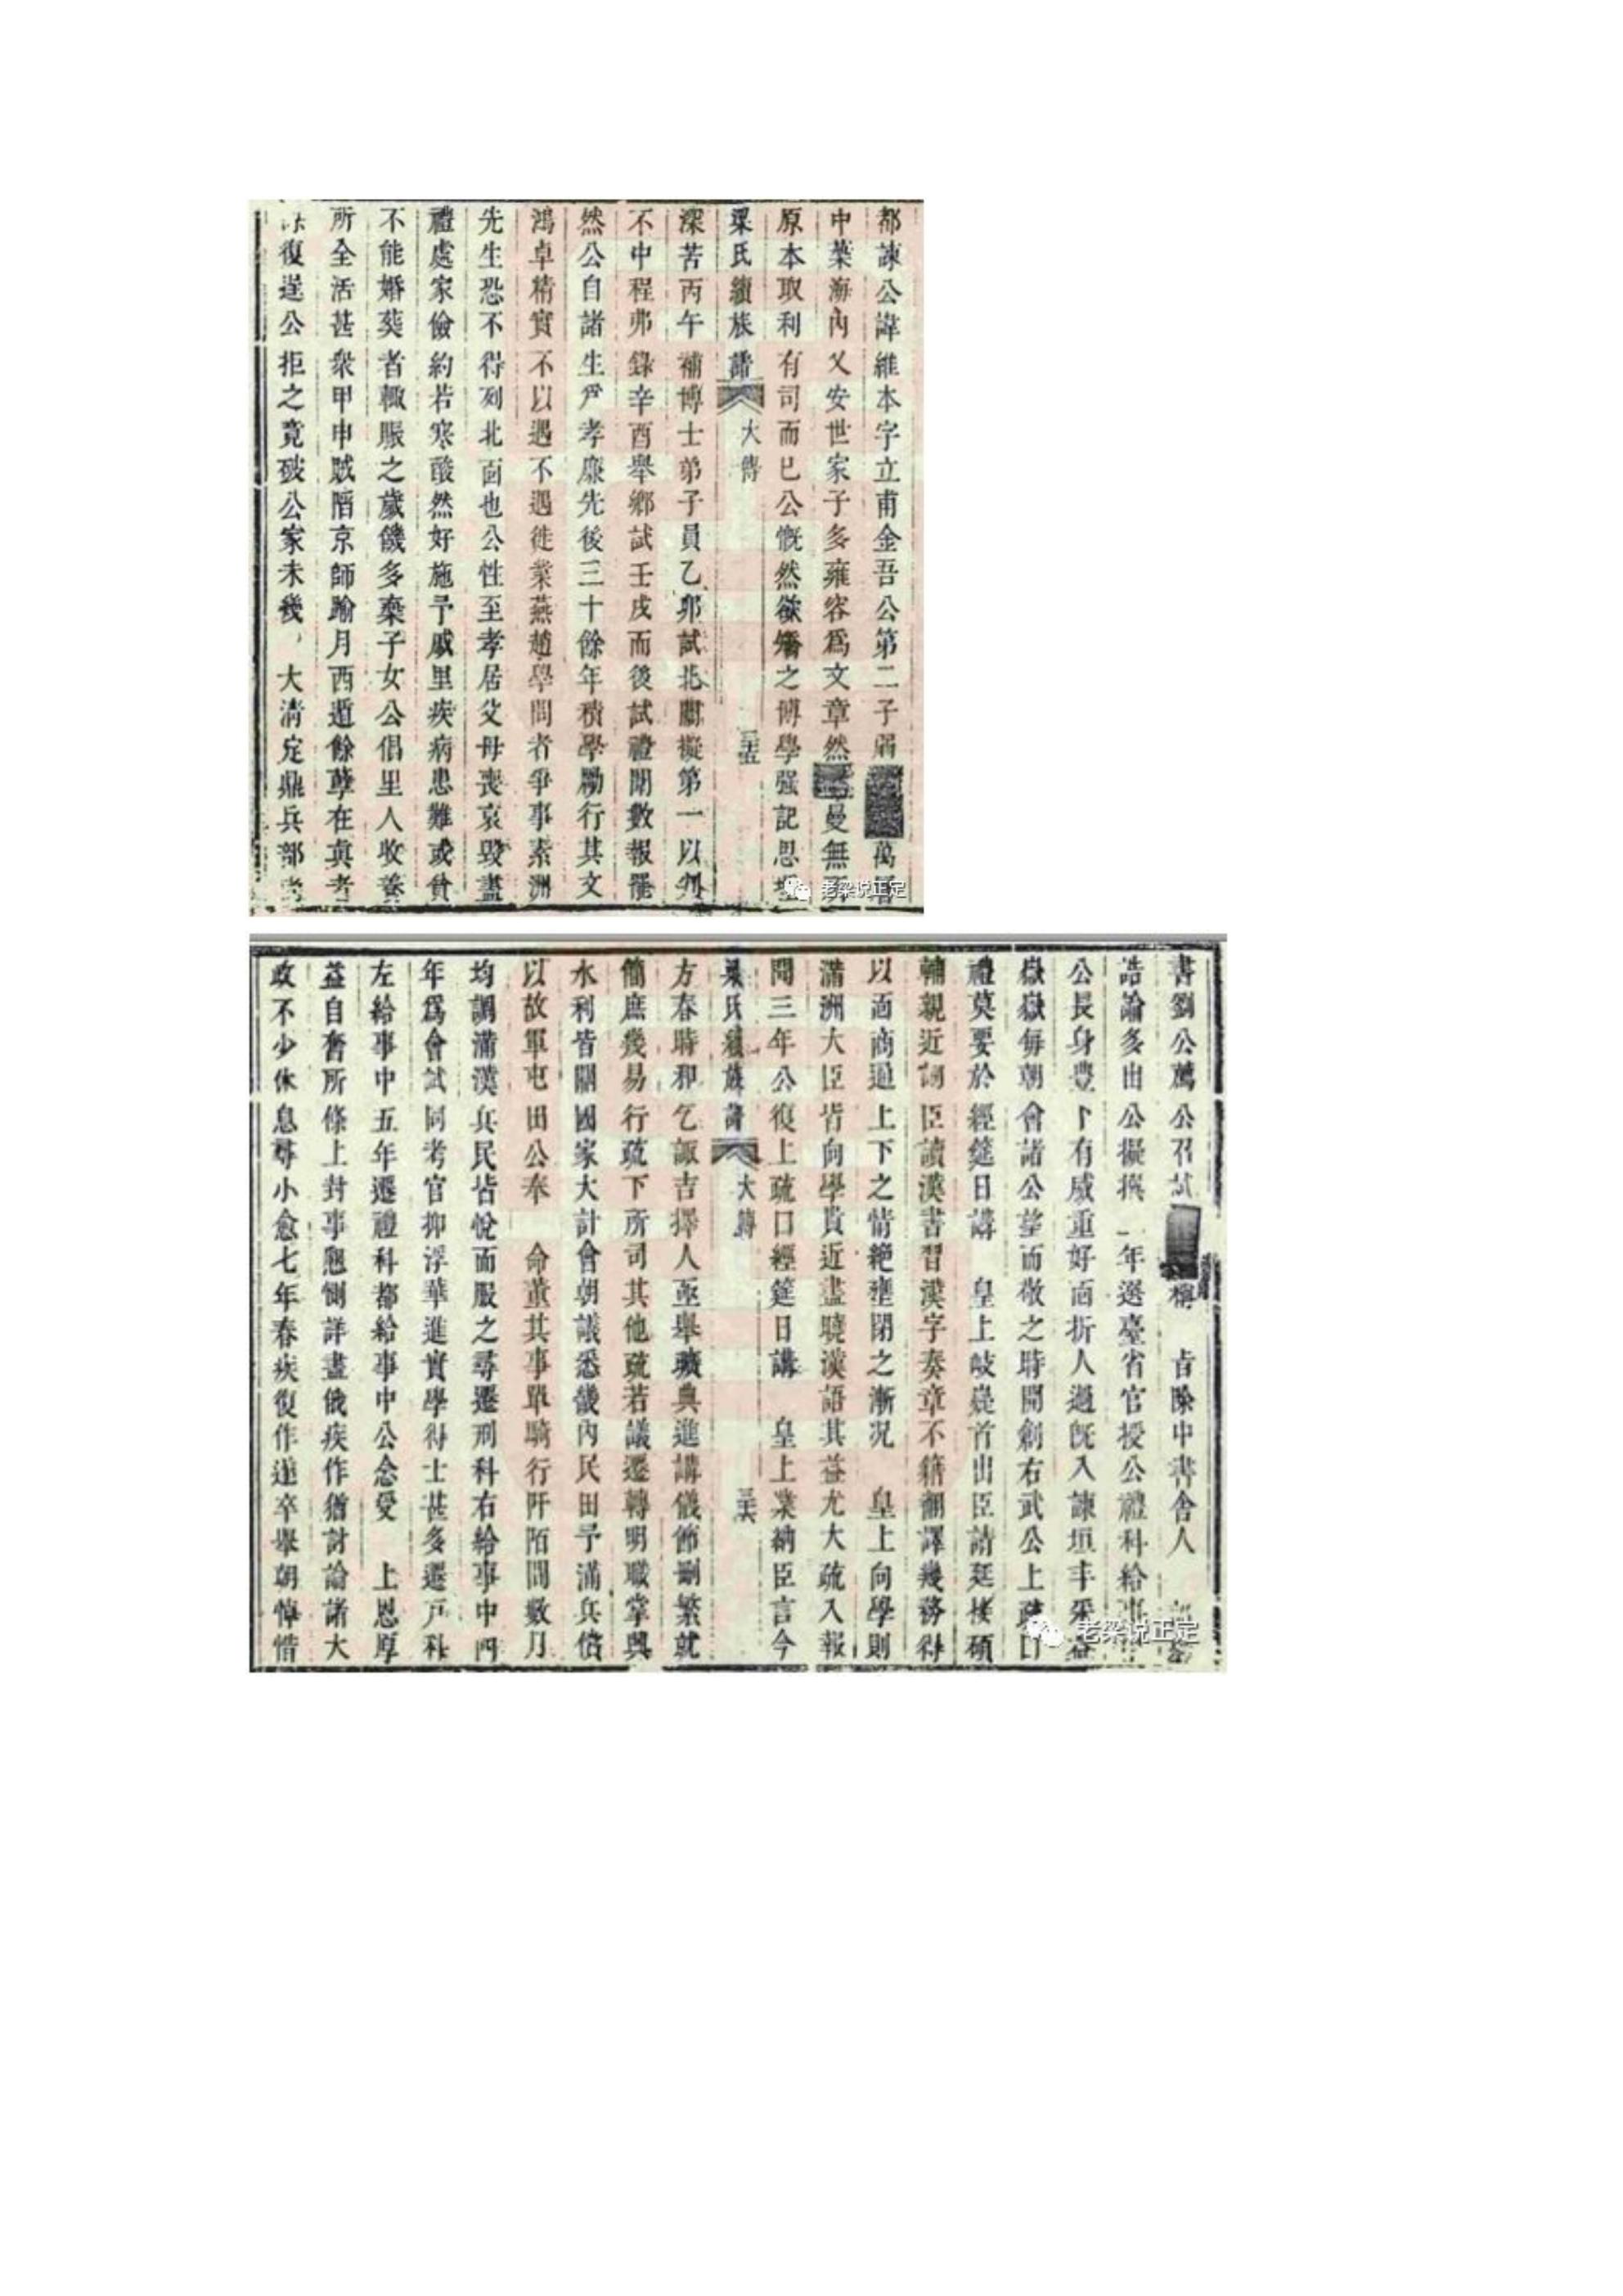 都諫公諱維本字立甫金吾公第二子弱萬
中葉海內乂安世家子多雍容爲文章然曼無
原本取利有司而已公慨然欲矯之博學强記思
梁氏續族譜 大傳 三五
深苦丙午補博士弟子員乙卯試北闈擬第一以
不中程弗錄辛酉舉鄉試壬戌而後試禮闈數報罷
然公自諸生爲孝廉先後三十餘年積學勵行其文
鴻卓精實不以遇不遇徙業燕趙學問者爭事素洲
先生恐不得列北面也公性至孝居父母喪哀毀盡
禮處家儉約若寒酸然好施予戚里疾病患難或貧
不能婚葬者輒賑之歲饑多棄子女公倡里人收養
所全活甚衆甲申賊陷京師踰月西遁餘孽在真者
復逞公拒之竟破公家未幾 大清定鼎兵部
書劉公薦公召試 旨除中書舍人
誥諭多出公擬撰 年選臺省官授公禮科給事
公長身豐下有威重好面折人過旣入諫垣丰采益
嶽嶽每朝會諸公望而敬之時開創右武公上疏曰
禮莫要於經筵日講 皇上岐嶷首出臣請延接碩
輔親近詞臣讀漢書習漢字奏章不籍翻譯幾務得
以面商通上下之情絶壅閉之漸况 皇上向學則
滿洲大臣皆向學貴近盡曉漢語其益尤大疏入報
聞三年公復上疏曰經筵日講 皇上業納臣言今
梁氏續族譜 大傳 三六
方春時和乞諏吉擇人亟舉曠典進講儀節刪繁就
簡庶幾易行疏下所司其他疏若議遷轉明職掌興
水利皆關國家大計會朝議悉畿內民田予滿兵償
以故軍屯田公奉 命董其事單騎行阡陌間數月
均調滿漢兵民皆悅而服之尋遷刑科右給事中四
年爲會試同考官抑浮華進實學得士甚多遷戶科
左給事中五年遷禮科都給事中公念受 上恩厚
益自奮所條上封事懇惻詳盡俄疾作猶討論諸大
政不少休息尋小愈七年春疾復作遂卒舉朝悼惜
老梁说正定
老梁说正定